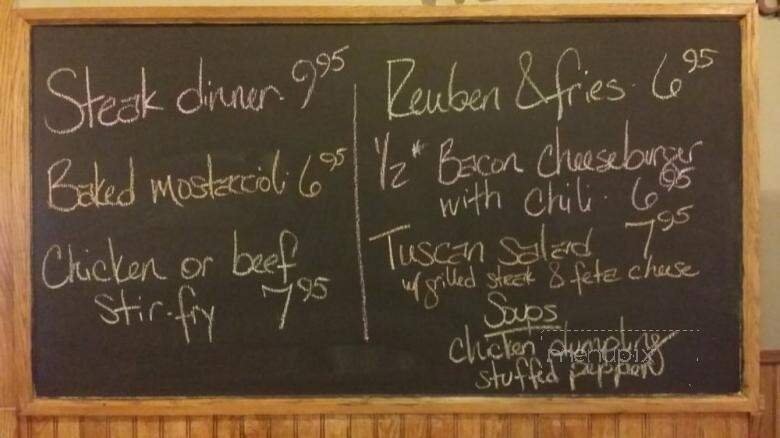 Steak dinner. 9 95
Baked mostaccioli 6 95
Chicken or beef
Stir-fry 7 95
Reuben & fries. 6 95
1/2 # Bacon cheeseburger
with chili. 6 95
Tuscan Salad 7 95
w/ grilled steak & feta cheese
Soups
chicken dumpling
stuffed pepper
menupix